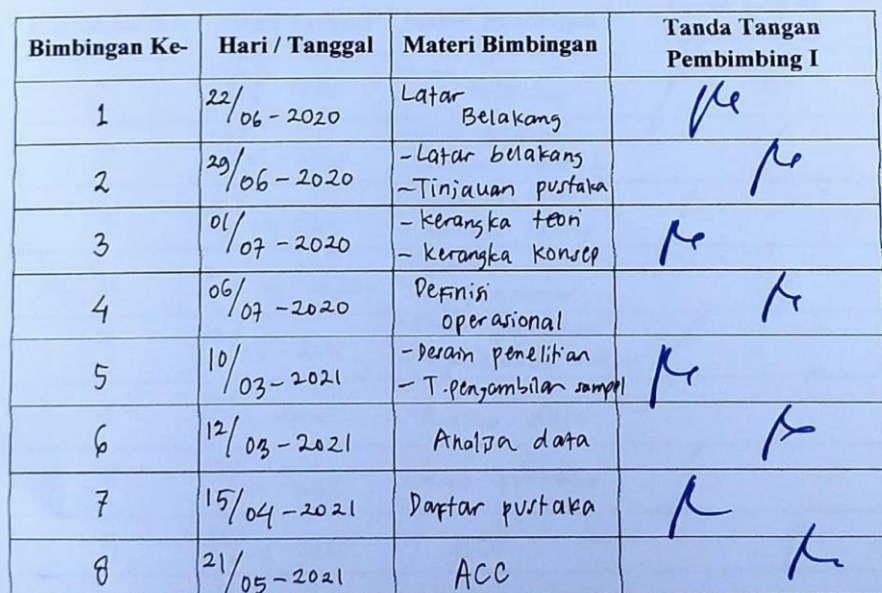 Bimbingan Ke- Hari / Tanggal Materi Bimbingan Tanda Tangan Pembimbing I
1 22/06-2020 Latar Belakang
2 29/06-2020 - Latar belakang
- Tinjauan pustaka
3 01/07-2020 - kerangka teori
- kerangka konsep
4 06/07-2020 Definisi operasional
5 10/03-2021 - Desain penelitian
- T. pengambilan sampel
6 12/03-2021 Analisa data
7 15/04-2021 Daftar pustaka
8 21/05-2021 ACC